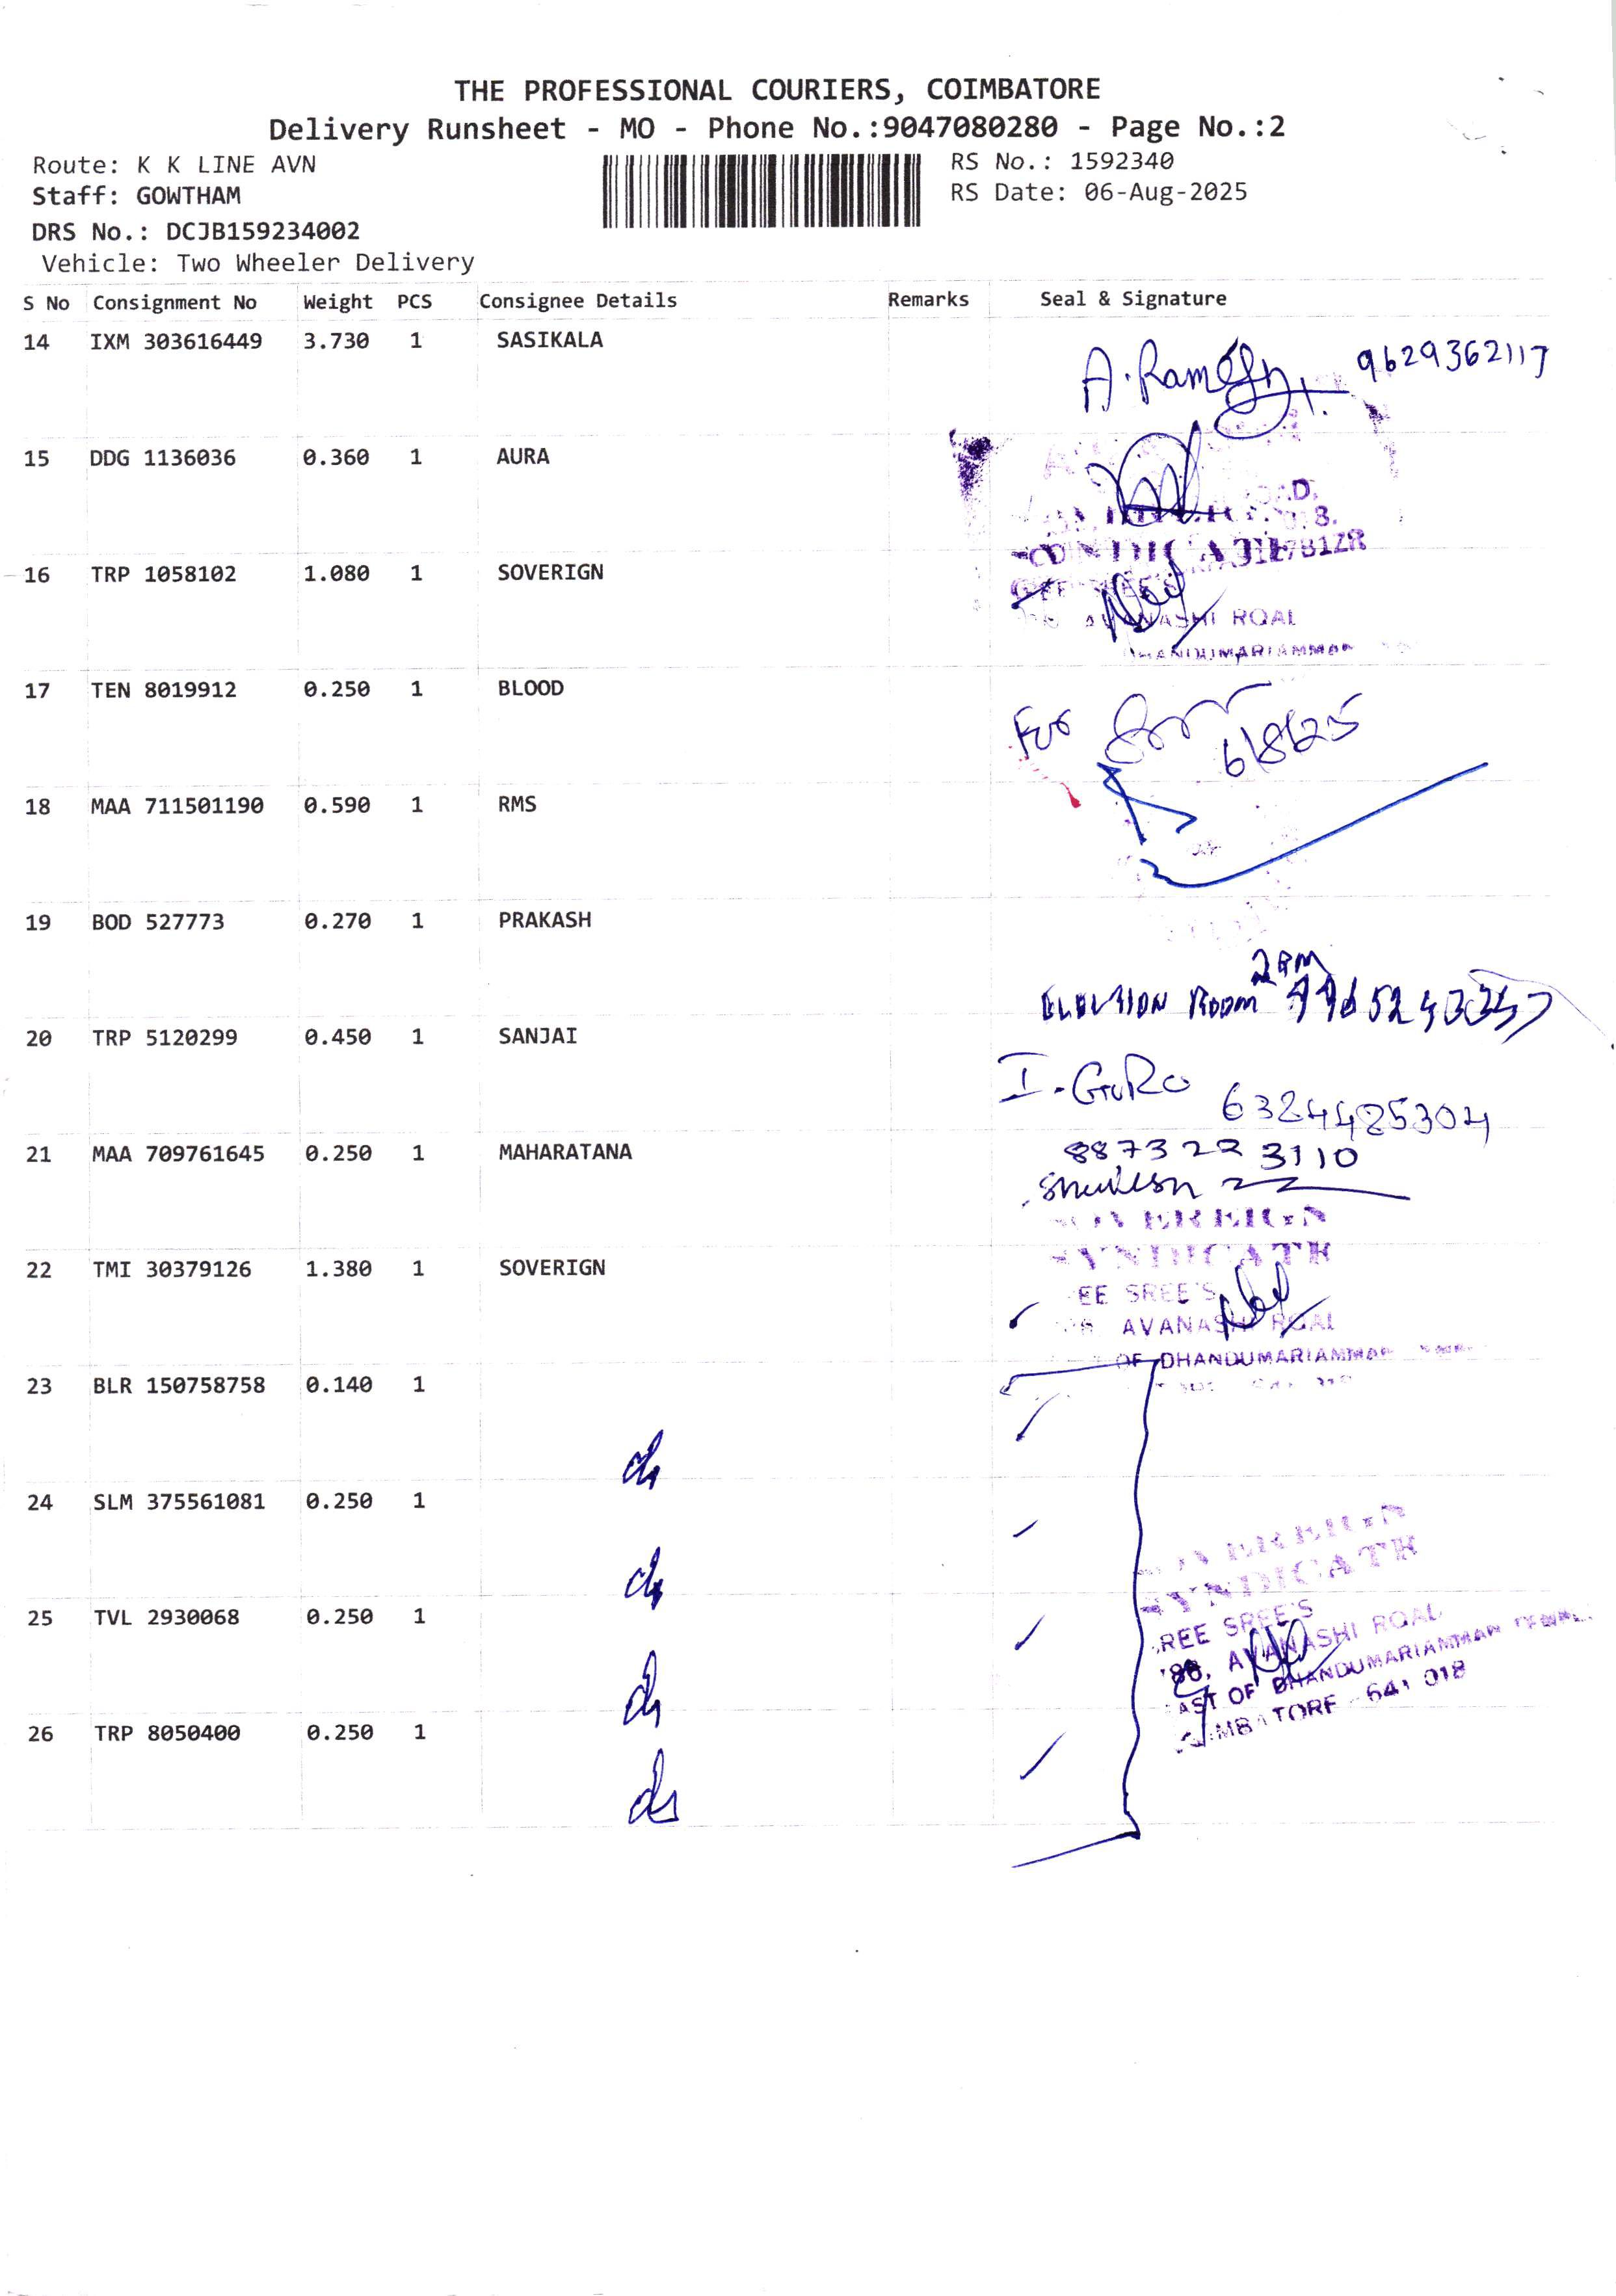 THE PROFESSIONAL COURIERS, COIMBATORE
Delivery Runsheet - MO - Phone No.:9047080280 - Page No.:2
Route: K K LINE AVN
RS No.: 1592340
Staff: GOWTHAM
RS Date: 06-Aug-2025
DRS No.: DCJB159234002
Vehicle: Two Wheeler Delivery
S No Consignment No Weight PCS Consignee Details Remarks Seal & Signature
14 IXM 303616449 3.730 1 SASIKALA
A.Ramesh 9629362117
15 DDG 1136036 0.360 1 AURA
16 TRP 1058102 1.080 1 SOVERIGN
AVANASHI ROAD
DHANDUMARIAMMAN
17 TEN 8019912 0.250 1 BLOOD
For
6/8/25
18 MAA 711501190 0.590 1 RMS
19 BOD 527773 0.270 1 PRAKASH
Room
20 TRP 5120299 0.450 1 SANJAI
I. GuRo
21 MAA 709761645 0.250 1 MAHARATANA
8873223110
SOVEREIGN
SYNDICATE
22 TMI 30379126 1.380 1 SOVERIGN
EE SREE'S
AVANASHI ROAD
OF DHANDUMARIAMMAN
23 BLR 150758758 0.140 1
24 SLM 375561081 0.250 1
SOVEREIGN
SYNDICATE
25 TVL 2930068 0.250 1
REE SREE'S
AVANASHI ROAD
AST OF DHANDUMARIAMMAN TEMPLE
26 TRP 8050400 0.250 1
COIMBATORE - 641 018